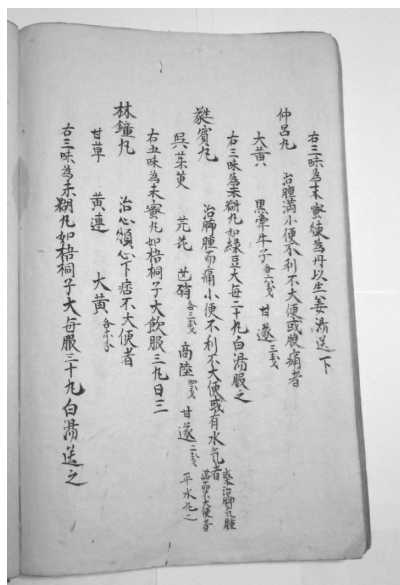 右三味為末蜜煉為丹以生姜湯送下
仲呂丸 治腫滿小便不利不大便或腹痛者
大黄 黒牽牛子各六戔 甘遂三戔
右三味為末糊丸如緑豆大每二十丸白湯服之
蕤賓丸 治脚腫而痛小便不利不大便或有水気者
呉茱萸 芫花 芒硝各三戔 商陸四戔 甘遂二戔 平水丸之
右五味為末蜜丸如梧桐子大飲服三丸日三
林鐘丸 治心煩心下痞不大便者
甘草 黄連 大黄
右三味為末糊丸如梧桐子大每服三十丸白湯送之